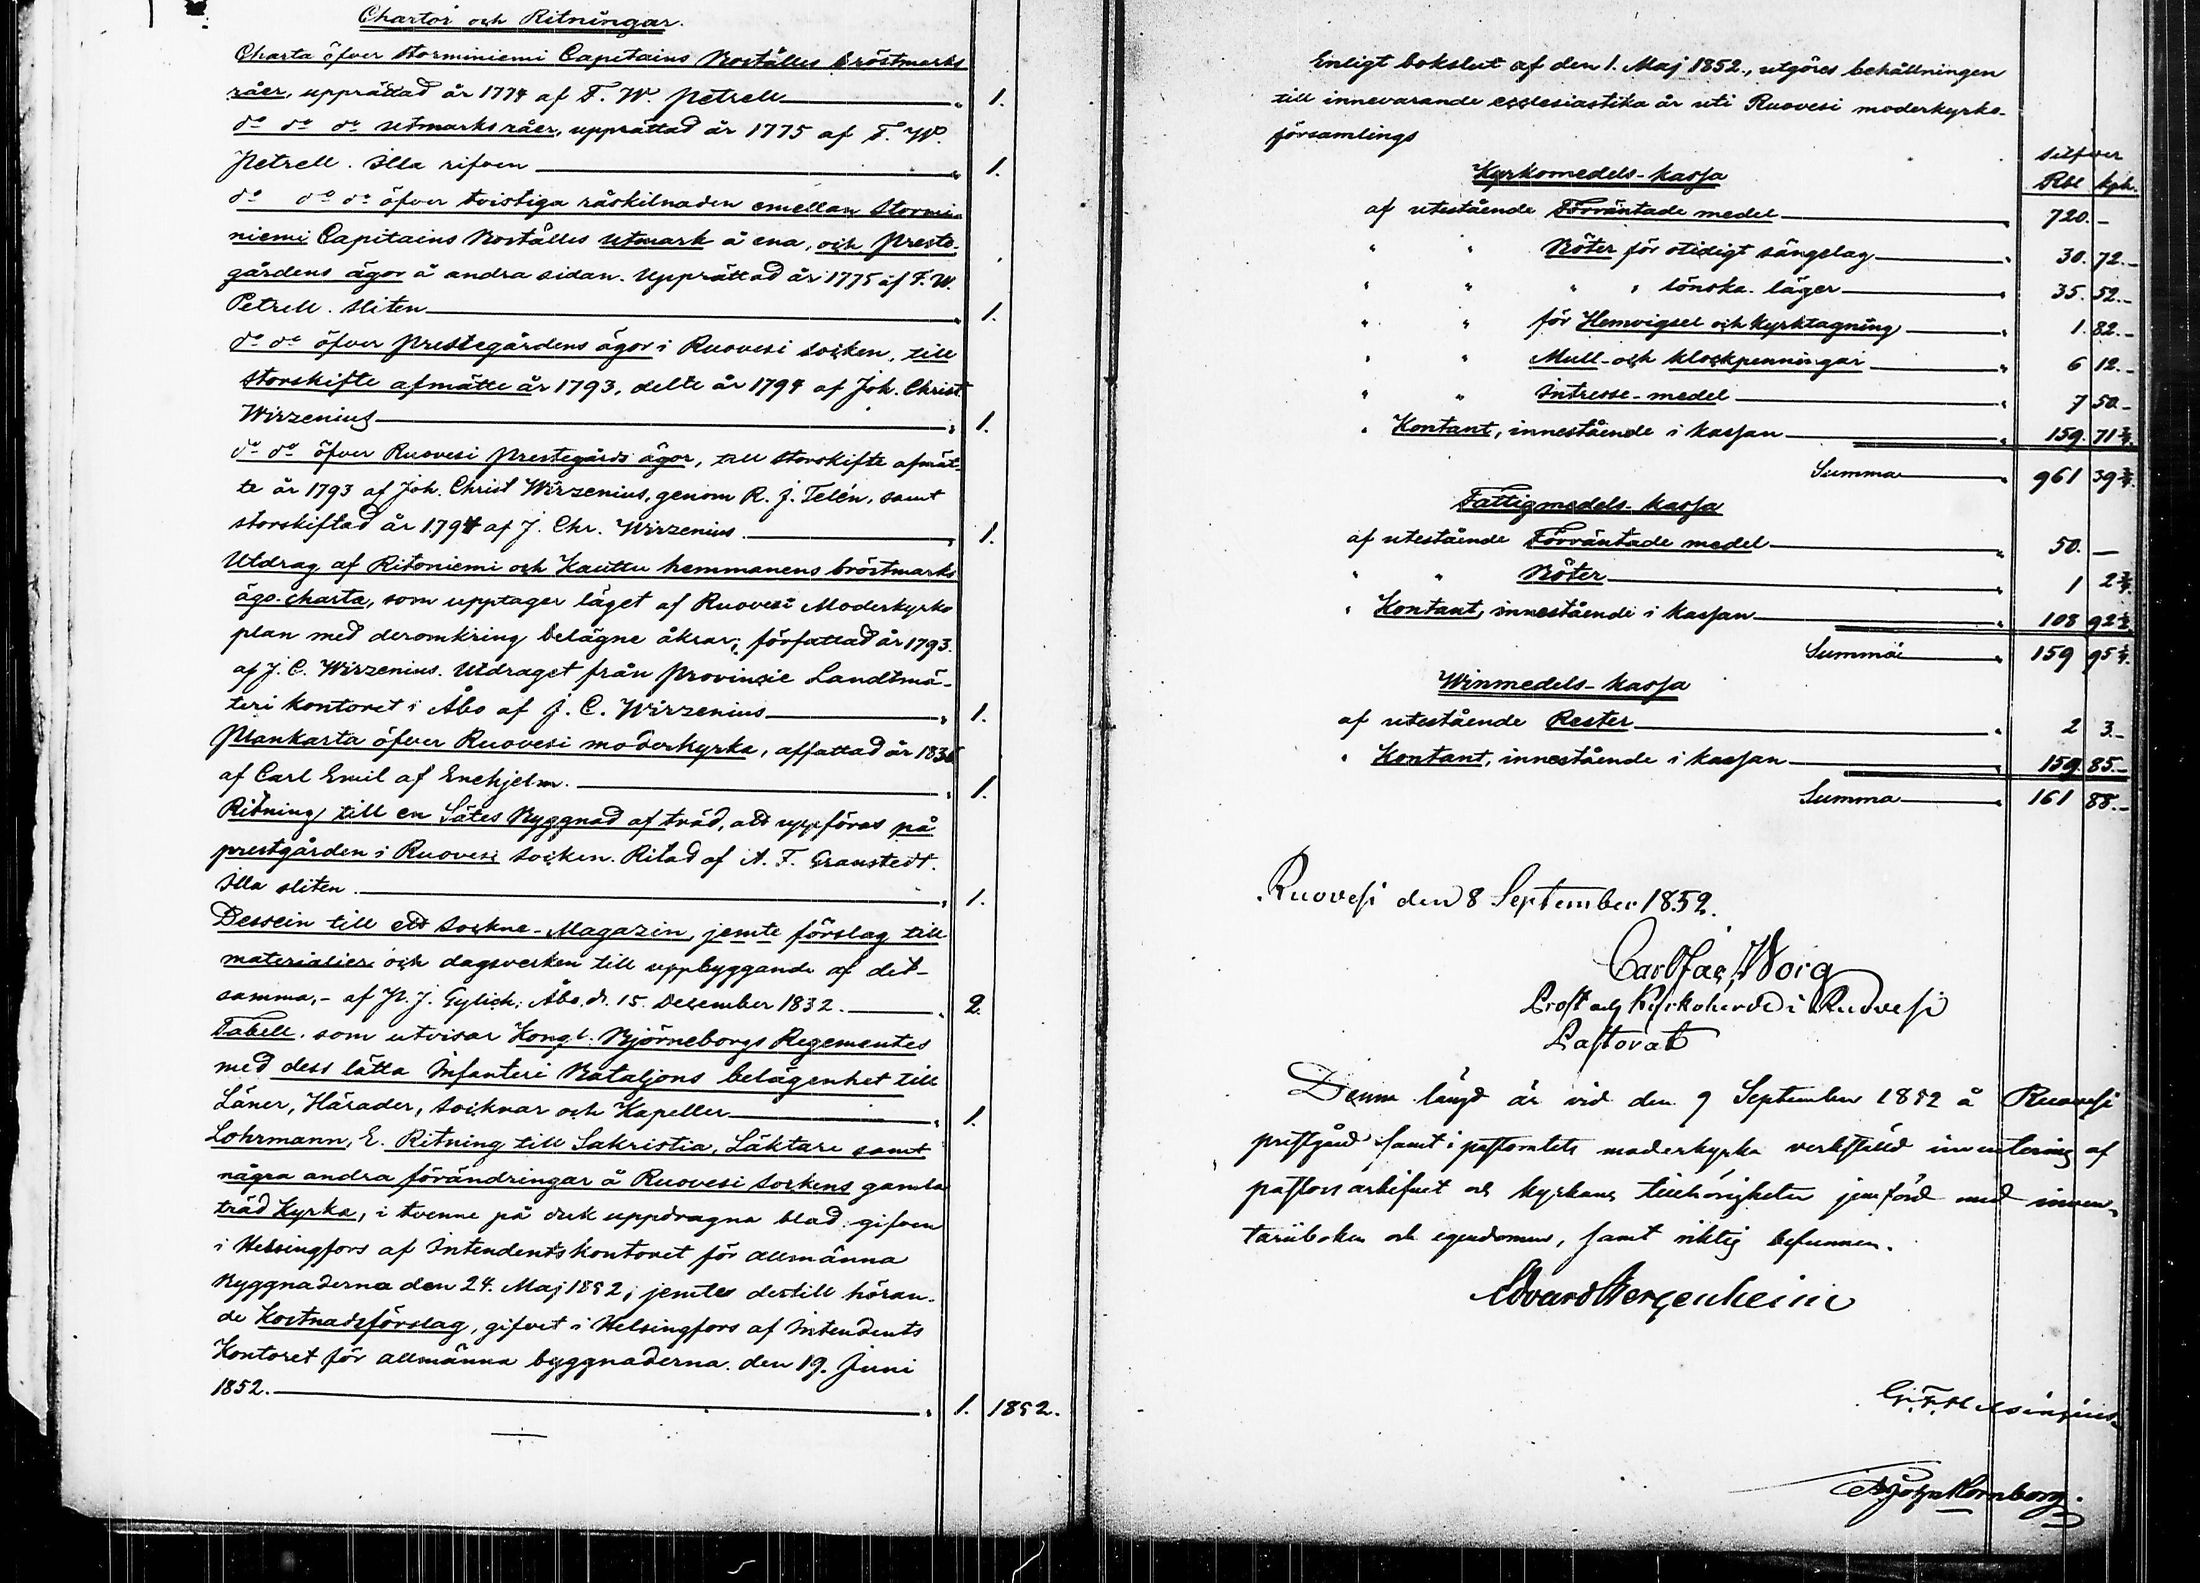 Chartor och Ritningar.
Charta öfver Storminiemi Capitains Boställes bröstmarks
råer, upprättad år 1774 af F. W. Petrell " 1.
do do do utmarks råer, upprättad år 1775 af F. W.
Petrell. Illa rifven " 1.
do do do öfver tvistiga råskilnaden emellan Stormi-
niemi Capitains Boställes utmark å ena, och Preste-
gårdens ägor å andra sidan. Upprättad år 1775 af F. W.
Petrell. Sliten " 1.
do do öfver Prestegårdens ägor i Ruovesi Socken, till
Storskifte afmätte år 1793, delte år 1794 af Joh. Christ.
Wirzenius " 1.
do do öfver Ruovesi Prestegårds ägor, till Storskifte afmät-
te år 1793 af Joh. Christ Wirzenius, genom R. J. Telén, samt
storskiftad år 1794 af J. Chr. Wirzenius. " 1.
Utdrag af Ritoniemi och Kauttu hemmanens bröstmarks
ägo-charta, som upptager läget af Ruovesi Moderkyrko
plan med deromkring belägne åkrar; författad år 1793.
af J. C. Wirzenius. Utdraget från Provincie Landtmä-
teri kontoret i Åbo af J. C. Wirzenius " 1.
Plankarta öfver Ruovesi moderkyrka, affattad år 1836
af Carl Emil af Enehjelm. " 1.
Ritning till en Sätes Byggnad af träd, att uppföras på
prestgården i Ruovesi Socken. Ritad af A. F. Granstedt.
Illa sliten. " 1.
Dessein till ett Sockne-Magazin, jemte förslag till
materialier och dagsverken till uppbyggande af det-
samma, - af P. J. Gylich; Åbo, d. 15. December 1832. " 2.
Tabell. som utvisar Kongl. Björneborgs Regementes
med dess lätta Infanteri Bataljons belägenhet till
Läner, Härader, Socknar och Kapeller " 1.
Lohrmann, E. Ritning till Sakristia, Läktare samt
några andra förändringar å Ruovesi Sockens gamla
träd Kyrka, i tvenne på duk uppdragna blad: gifven
i Helsingfors af Intendents kontoret för allmänna
Byggnaderna den 24. Maj 1852; jemtes dertill höran-
de Kostnadsförslag, gifvet i Helsingfors af Intendents
Kontoret för allmänna byggnaderna. den 19. Juni
1852. " 1. 1852.
Enligt bokslut af den 1. Maj 1852., utgöres behållningen
till innevarande ecclesiastika år uti Ruovesi moderkyrko-
församlings
Silfver
Kyrkomedels-kassa Rbl kpk.
af utestående Förväntade medel " 720. -
" " Böter för otidigt sängelag " 30. 72. -
" " " " lönska läger " 35. 52. -
" " för Hemvigsel och kyrktagning " 1. 82. -
" " Mull- och klockpenningar " 6 12. -
" " Intresse-medel " 7 50 -
" Kontant, innestående i kassan " 159. 71 3/4.
Summa " 961 39 3/4.
Fattigmedels-kassa
af utestående Förväntade medel " 50. —
" " Böter " 1 2 3/4.
" Kontant, innestående i kassan " 108 92 1/2.
Summa " 159 95 1/4.
Winmedels-kassa
af utestående Rester " 2 3. -
" Kontant, innestående i kassan " 159. 85. -
Summa " 161 88. -
Ruovesi den 8 September 1852.
Carl Jac. Borg
Prost och Kyrkoherde i Ruovesi
Pastorat
Denna längd är vid den 9 September 1852 å Ruovesi
prestgård samt i pastoratets moderkyrka verkställd inventering af
pastorsarkifvet och kyrkans tillhörigheter jemförd med inven-
tariiboken och egendomen, samt riktig befunnen.
Edvard Bergenheim
G. F. Helsingius
Kornborg.